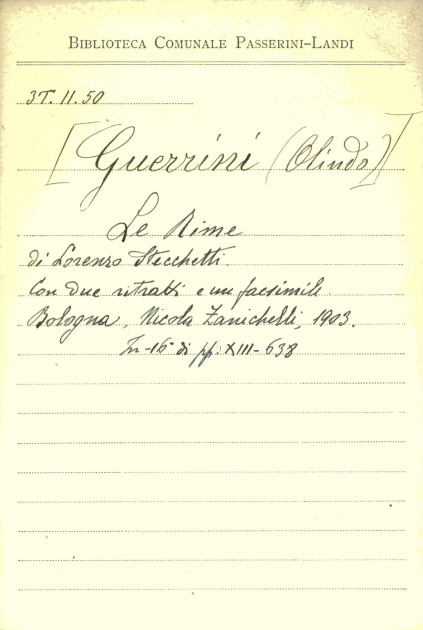 BIBLIOTECA COMUNALE PASSERINI-LANDI
3T. 11. 50
[Guerrini (Olindo)]
Le Rime
di Lorenzo Stecchetti.
Con due ritratti e un facsimile.
Bologna, Nicola Zanichelli, 1903.
In-16° di pp. XIII-638